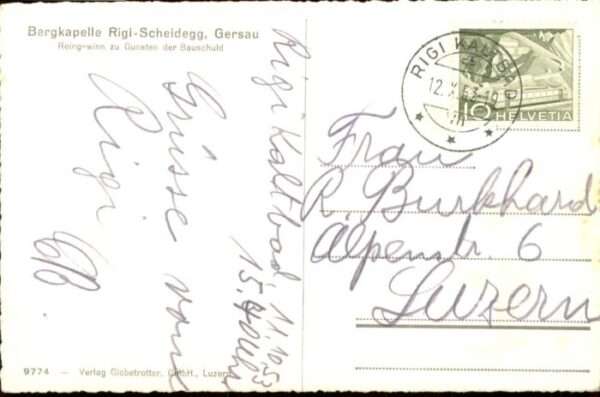 Bergkapelle Rigi-Scheidegg, Gersau
Reing-winn zu Gunsten der Bauschuld
Rigi Kaltbad, 11.10.53
15.40 Uhr
Grüsse vom
Rigi
RIGI KALTBAD
12.X.53-19
10 HELVETIA
Frau
R. Burkhard
Alpenstr. 6
Luzern
9774 — Verlag Globetrotter, GmbH., Luzern